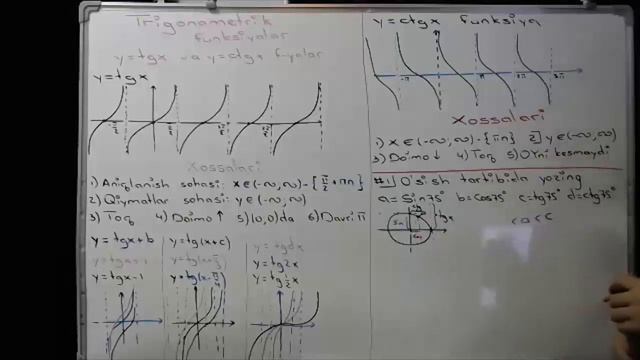 Trigonometrik
funksiyalar
y=tgx va y=ctgx f-yalar
y=tgx
Xossalari
1) Aniqlanish sohasi: x∈(-∞,∞)-{π/2+πn}
2) Qiymatlar sohasi: y∈(-∞,∞)
3) Toq 4) Doimo ↑ 5) (0,0)da 6) Davri π
y=tgx+b y=tg(x+c)
y=tgx-1 y=tg(x-π/4) y=tg2x
y=tg½x
y=ctgx funksiya
-π π 2π 3π
Xossalari
1) x∈(-∞,∞)-{πn} 2) y∈(-∞,∞)
3) Doimo ↓ 4) Toq 5) OYni kesmaydi
#1) O'sish tartibida yozing
a=sin75° b=cos75° c=tg75° d=ctg75°
<a<c